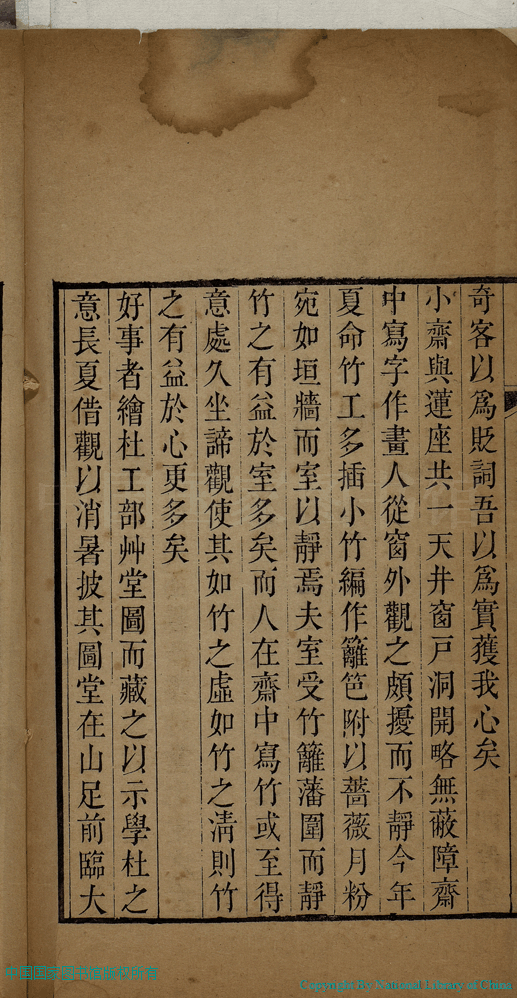 奇客以爲貶詞吾以爲實獲我心矣
小齋與蓮座共一天井窗戸洞開略無蔽障齋
中寫字作畫人從窗外觀之頗擾而不靜今年
夏命竹工多插小竹編作籬笆附以薔薇月粉
宛如垣牆而室以靜焉夫室受竹籬藩圍而靜
竹之有益於室多矣而人在齋中寫竹或至得
意處久坐諦觀使其如竹之虛如竹之淸則竹
之有益於心更多矣
好事者繪杜工部艸堂圖而藏之以示學杜之
意長夏借觀以消暑披其圖堂在山足前臨大
中国国家图书馆版权所有
Copyright By National Library of China